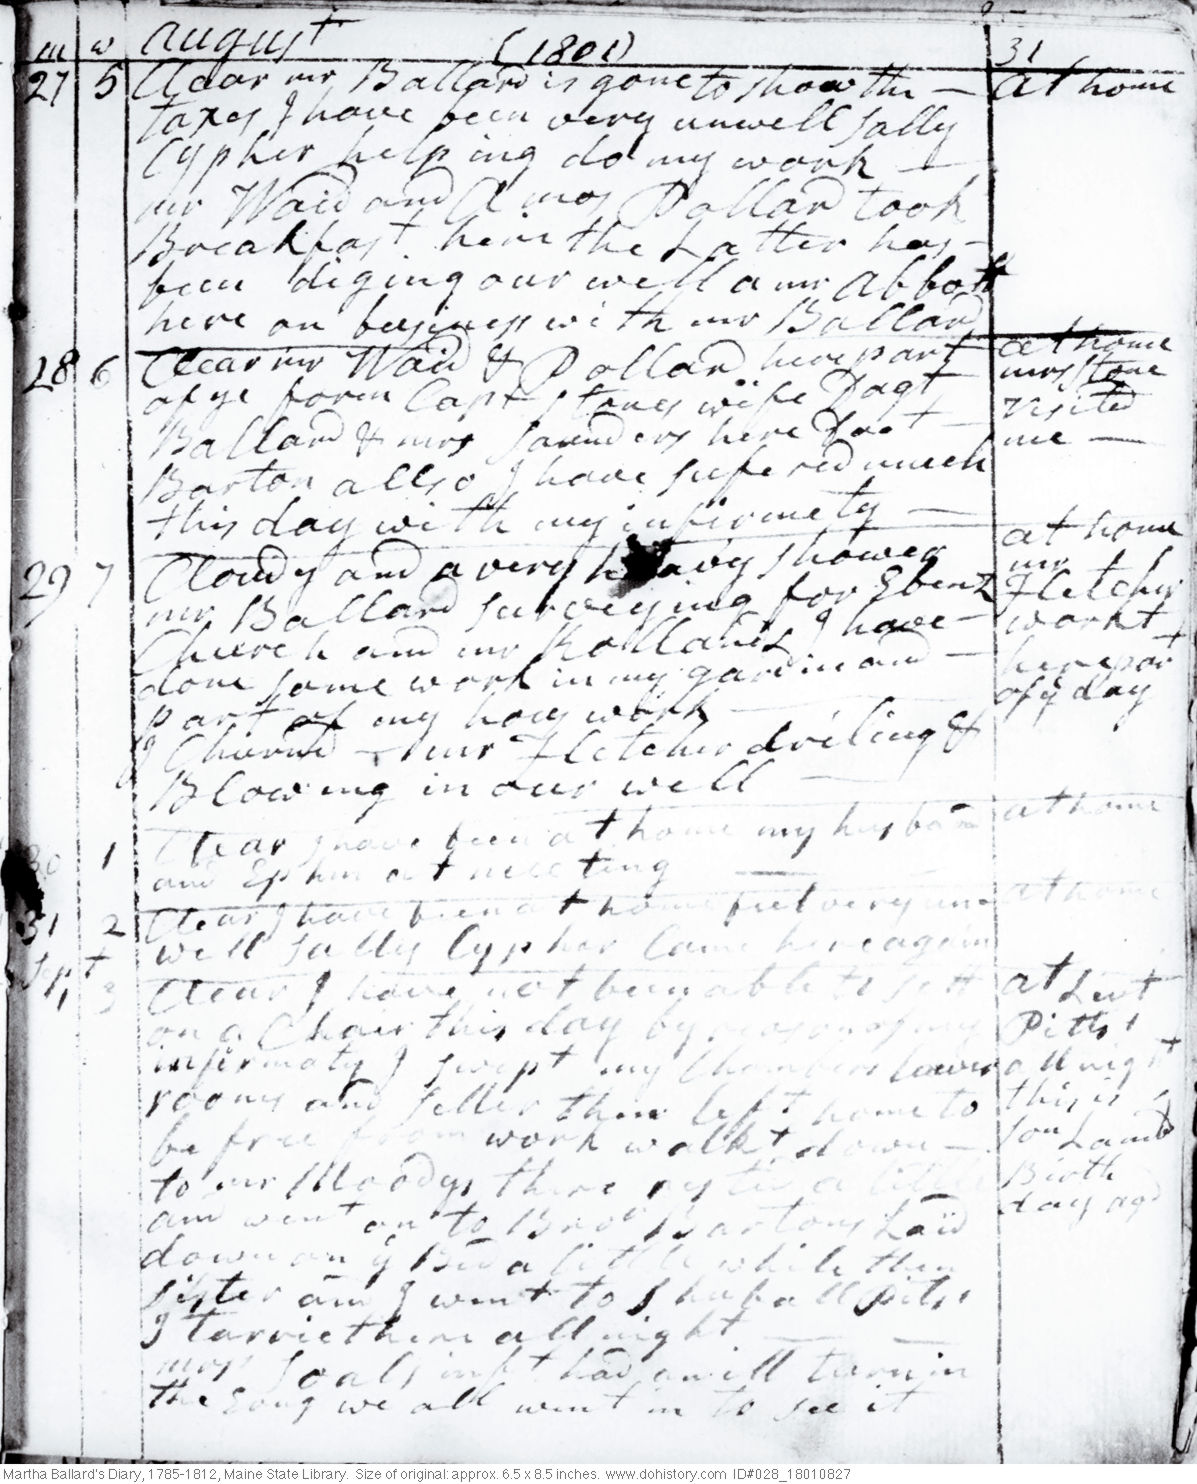 m w august (1801) 31
27 5 Clear mr Ballard is gone to shaw the — at home
taxes I have been very unwell Sally
Cypher helping do my work —
mr Waid and Amos Pollard took
Breakfast here the Latter has —
been diging our well a mr Abbott
here on business with mr Ballard
28 6 Clear mr Waid & Pollard here part at home
of ye foren Capt Stones wife Dagt mrs Stone
Ballard & mrs Saunders here visited
Barton allso I have sufered much me —
this day with my infirmety —
29 7 Cloudy and a very heavy shower at home
mr Ballard surveying for Ebenz mr
Church and mr I have — Fletcher
done some work in my gardin and — workt
part of my hous work — here part
I Churnd — mr Fletcher driling & of ye day
Blowing in our well —
30 1 Clear I have been at home my husband at home
and Ephm at meeting —
31 2 Clear I have been at home feel very un= at home
well Sally Cypher Came here again
Sept
1 3 Clear I have not been able to sett at Lieut
on a Chair this day by reason of my Pitts
infirmaty I swept my Chambers lower all night
rooms and seller then left home to this is
be free from work walkt down — son Lamb
to mr Moodys there a little Birth
and went on to Bror Bartons Laid day
down on ye Bed a little while then
sister and I went to Shuball Pitts
I tarrie there all night —
mrs had an ill turn in
the we all went in to see it
Martha Ballard's Diary, 1785-1812, Maine State Library. Size of original: approx. 6.5 x 8.5 inches. www.dohistory.com ID#028_18010827